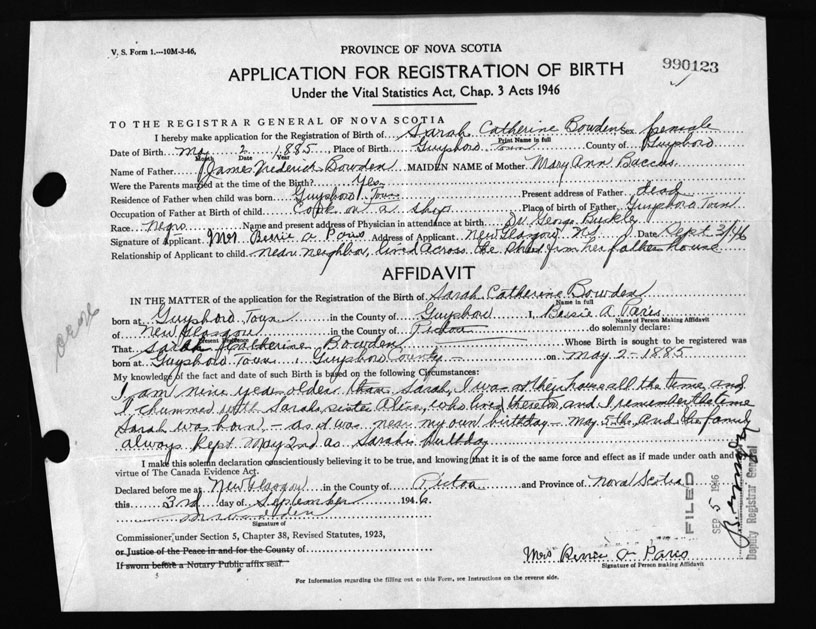 V. S. Form 1.—10M-3-46,
PROVINCE OF NOVA SCOTIA
990123
APPLICATION FOR REGISTRATION OF BIRTH
Under the Vital Statistics Act, Chap. 3 Acts 1946
TO THE REGISTRAR GENERAL OF NOVA SCOTIA
I hereby make application for the Registration of Birth of Sarah Catherine Bowden Sex female
Print Name in full
Date of Birth May 2 1885 Place of Birth Guysboro Town County of Guysboro
Month Date Year
Name of Father James Frederick Bowden MAIDEN NAME of Mother Mary Ann Baccus
Were the Parents married at the time of the Birth? Yes
Residence of Father when child was born Guysboro Town Present address of Father dead
Occupation of Father at Birth of child Cook on a ship Place of birth of Father Guysboro Town
Race negro Name and present address of Physician in attendance at birth George Buckley
Signature of Applicant Mrs A Paris Address of Applicant New Glasgow NS Date Sept 3/46
Relationship of Applicant to child near neighbor, lived across the from her father house
AFFIDAVIT
IN THE MATTER of the application for the Registration of the Birth of Sarah Catherine Bowden
Name in full
born at Guysboro Town in the County of Guysboro I, A. Paris
Name of Person Making Affidavit
of New Glasgow in the County of Pictou do solemnly declare:
Present Residence
That Sarah Catherine Bowden Whose Birth is sought to be registered was
born at Guysboro Town, Guysboro County on May 2 - 1885
My knowledge of the fact and date of such Birth is based on the following Circumstances:
I am nine years older than Sarah, I was in their house all the time and
I chummed with Sarahs sister Alice, who lived and I remember the time
Sarah was born - as it was near my own birthday - May 5th and the family
always kept May 2nd as Sarahs birthday
I make this solemn declaration conscientiously believing it to be true, and knowing that it is of the same force and effect as if made under oath and
virtue of The Canada Evidence Act.
Declared before me at New Glasgow in the County of Pictou and Province of Nova Scotia
this 3rd day of September 1946.
Signature of
Commissioner, under Section 5, Chapter 38, Revised Statutes, 1923,
or Justice of the Peace in and for the County of
If sworn before a Notary Public affix seal
Mrs A Paris
Signature of Person making Affidavit
For Information regarding the filling out of this Form, see Instructions on the reverse side.
FILED
SEP 5 1946
Deputy Registrar General